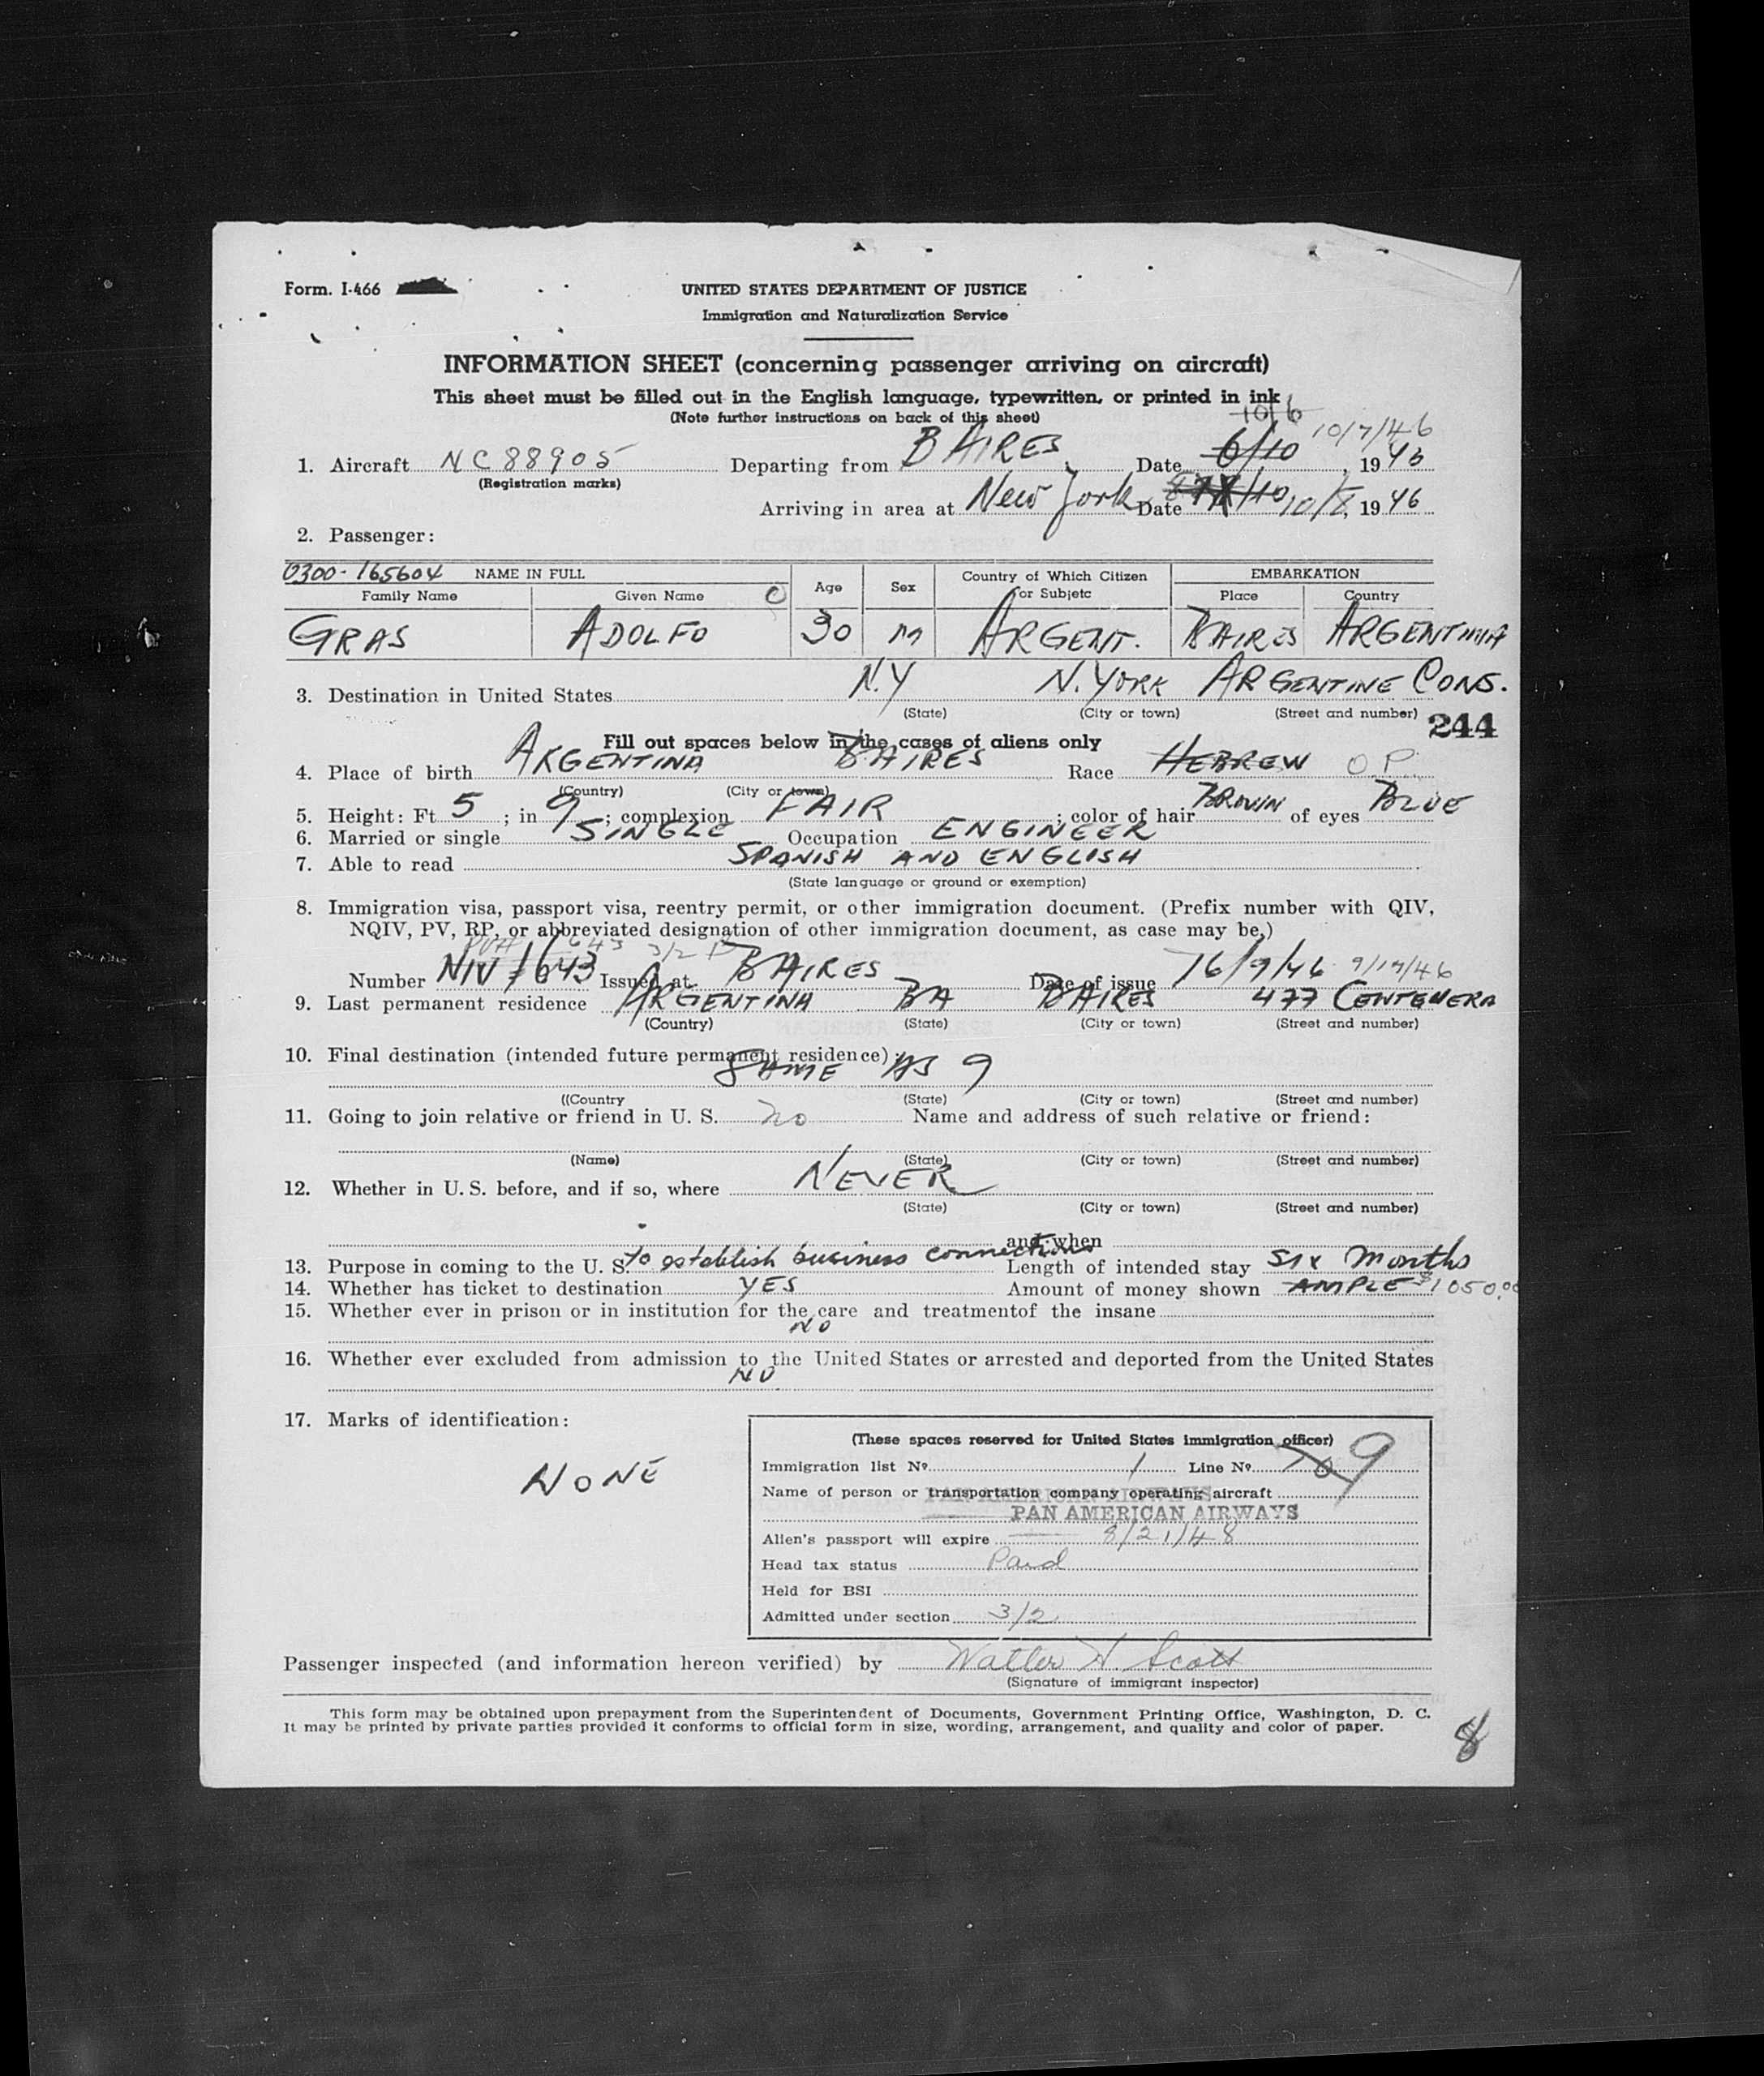 Form. I-466
UNITED STATES DEPARTMENT OF JUSTICE
Immigration and Naturalization Service
INFORMATION SHEET (concerning passenger arriving on aircraft)
This sheet must be filled out in the English language, typewritten, or printed in ink
(Note further instructions on back of this sheet)
10/6
10/7/46
1. Aircraft NC88905 Departing from BAIRES Date 6/10, 1946
(Registration marks)
Arriving in area at New York Date 10/8, 1946
2. Passenger:
0300-165604 NAME IN FULL Age Sex Country of Which Citizen or Subjetc EMBARKATION
Family Name Given Name Place Country
GRAS ADOLFO 30 M ARGENT. BAIRES ARGENTINA
3. Destination in United States N.Y N.YORK ARGENTINE CONS.
(State) (City or town) (Street and number)
244
Fill out spaces below in the cases of aliens only
4. Place of birth ARGENTINA BAIRES Race HEBREW O.P.
(Country) (City or town)
5. Height: Ft 5; in 9; complexion FAIR; color of hair BROWN of eyes BLUE
6. Married or single SINGLE Occupation ENGINEER
7. Able to read SPANISH AND ENGLISH
(State language or ground or exemption)
8. Immigration visa, passport visa, reentry permit, or other immigration document. (Prefix number with QIV,
NQIV, PV, RP, or abbreviated designation of other immigration document, as case may be,)
643 3/2
Number NIV 643 Issued at BAIRES Date of issue 16/9/46 9/17/46
9. Last permanent residence ARGENTINA BA BAIRES 477 CENTENERA
(Country) (State) (City or town) (Street and number)
10. Final destination (intended future permanent residence):
SAME AS 9
((Country (State) (City or town) (Street and number)
11. Going to join relative or friend in U. S. no Name and address of such relative or friend:
(Name) (State) (City or town) (Street and number)
12. Whether in U. S. before, and if so, where NEVER
(State) (City or town) (Street and number)
and when
13. Purpose in coming to the U. S. to establish business connections Length of intended stay six months
14. Whether has ticket to destination YES Amount of money shown AMPLE $1050.00
15. Whether ever in prison or in institution for the care and treatmentof the insane
NO
16. Whether ever excluded from admission to the United States or arrested and deported from the United States
NO
17. Marks of identification:
NONE
(These spaces reserved for United States immigration officer)
Immigration list Nº 1 Line Nº 9
Name of person or transportation company operating aircraft
PAN AMERICAN AIRWAYS
Alien's passport will expire 8/21/48
Head tax status Paid
Held for BSI
Admitted under section 3/2
Passenger inspected (and information hereon verified) by Walter H. Scott
(Signature of immigrant inspector)
This form may be obtained upon prepayment from the Superintendent of Documents, Government Printing Office, Washington, D. C.
It may be printed by private parties provided it conforms to official form in size, wording, arrangement, and quality and color of paper.
8